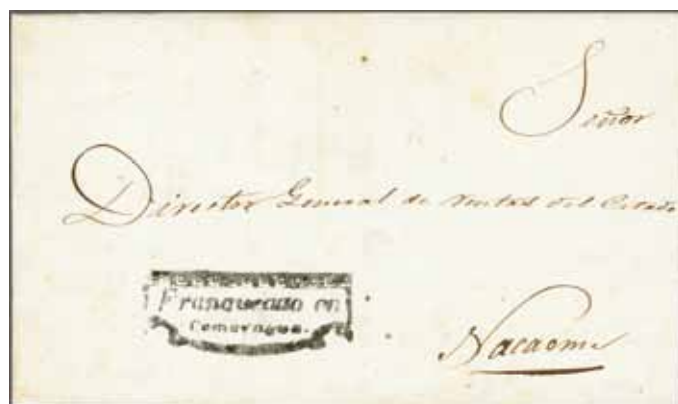 Señor
Director General de Rentas del Estado
Franqueado en
Comayagua.
Nacaome